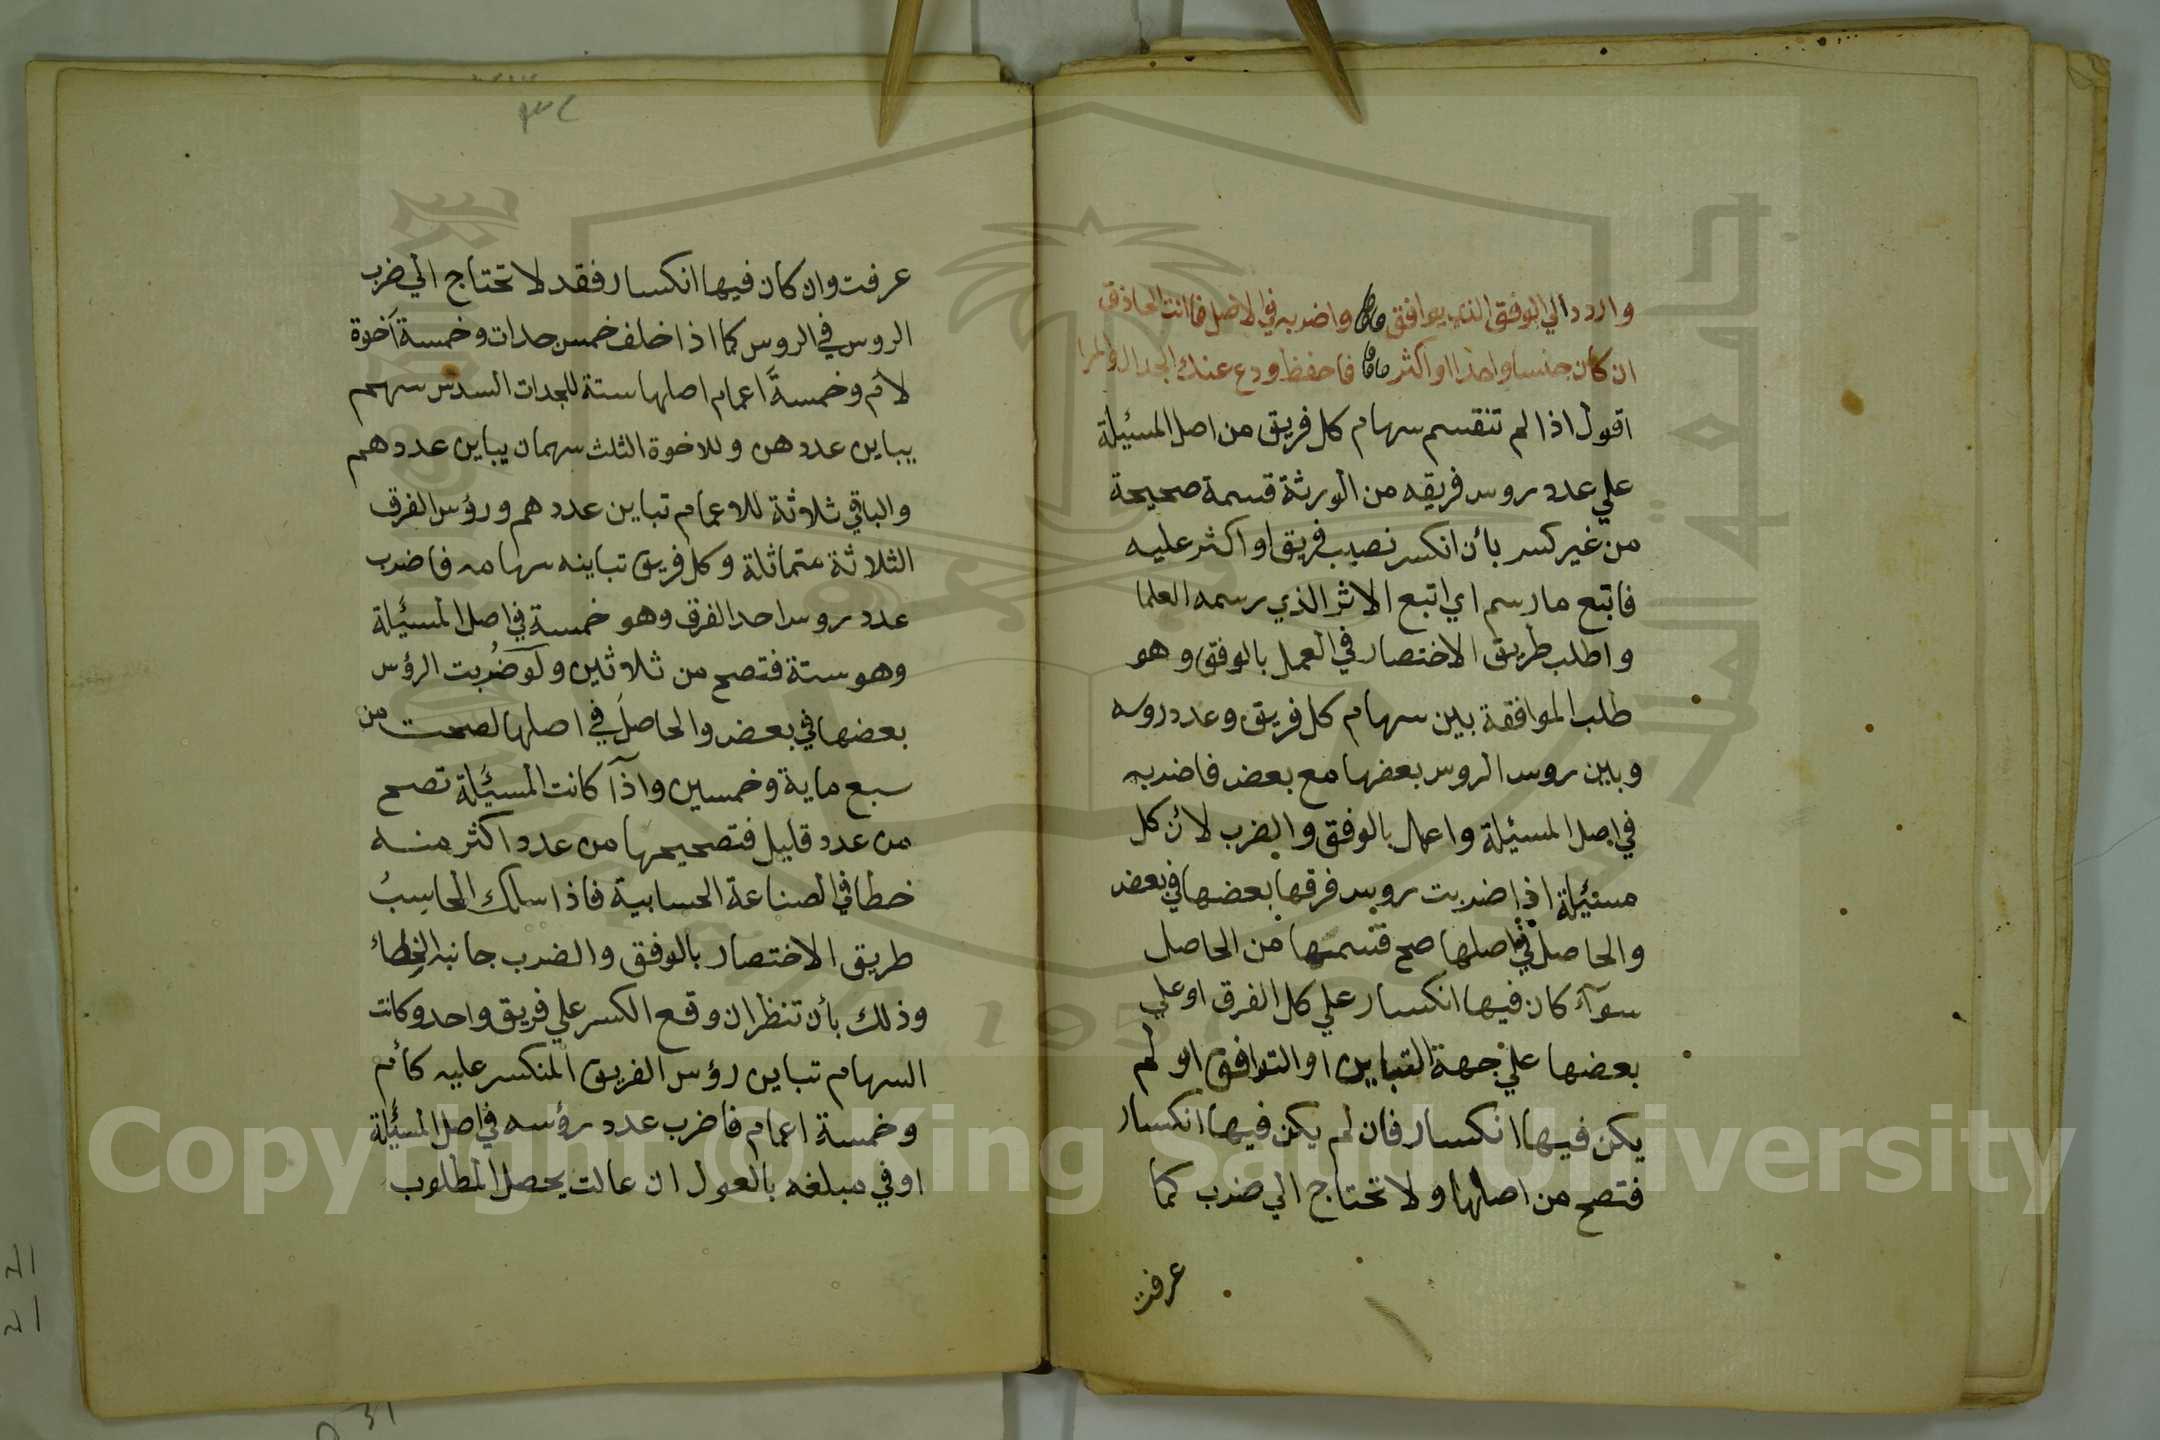 واردد الي الوفق الذي يوافق واضربه في الاصل فانت الحاذق
ان كان جنسا واحدا او اكثر فاحفظ ودع عنك الجدال والمرا
اقول اذا لم تنقسم سهام كل فريق من اصل المسئيلة
علي عدد روس فريقه من الورثة قسمة صحيحة
من غير كسر بأن انكسر نصيب فريق او اكثر عليه
فاتبع ما رسم اي اتبع الاثر الذي رسمه العلما
واطلب طريق الاختصار في العمل بالوفق وهو
طلب الموافقة بين سهام كل فريق وعدد روسه
وبين روس الروس بعضها مع بعض فاضربه
في اصل المسئيلة واعمل بالوفق والضرب لأن كل
مسئيلة اذا ضربت روس فرقها بعضها في بعض
والحاصل في اصلها صح قسمتها من الحاصل
سوآء كان فيها انكسار علي كل الفرق او علي
بعضها علي جهة التباين او التوافق او لم
يكن فيها انكسار فان لم يكن فيها انكسار
فتصح من اصلها ولا تحتاج الي ضرب كما
عرفت
٣٤
عرفت وان كان فيها انكسار فقد لا تحتاج الي ضرب
الروس في الروس كما اذا خلف خمس جدات وخمسة آخوة
لأم وخمسة اعمام اصلها ستة للجدات السدس سهم
يباين عددهن وللاخوة الثلث سهمان يباين عددهم
والباقي ثلاثة للاعمام تباين عددهم ورؤس الفرق
الثلاثة متماثلة وكل فريق تباينه سهامه فاضرب
عدد روس احد الفرق وهو خمسة في اصل المسئيلة
وهو ستة فتصح من ثلاثين ولو ضُربت الرؤس
بعضها في بعض والحاصل في اصلها لصحت من
سبع ماية وخمسين واذآ كانت المسئيلة تصح
من عدد قليل فتصحيحها من عدد اكثر منه
خطا في الصناعة الحسابية فاذا سلك الحاسِبُ
طريق الاختصار بالوفق والضرب جانبه الخطاء
وذلك بأن تنظر ان وقع الكسر علي فريق واحد وكانت
السهام تباين رؤس الفريق المنكسر عليه كأم
وخمسة اعمام فاضرب عدد رؤسه في اصل المسئيلة
او في مبلغه بالعول ان عالت يحصل المطلوب
Copyright © King Saud University
1957